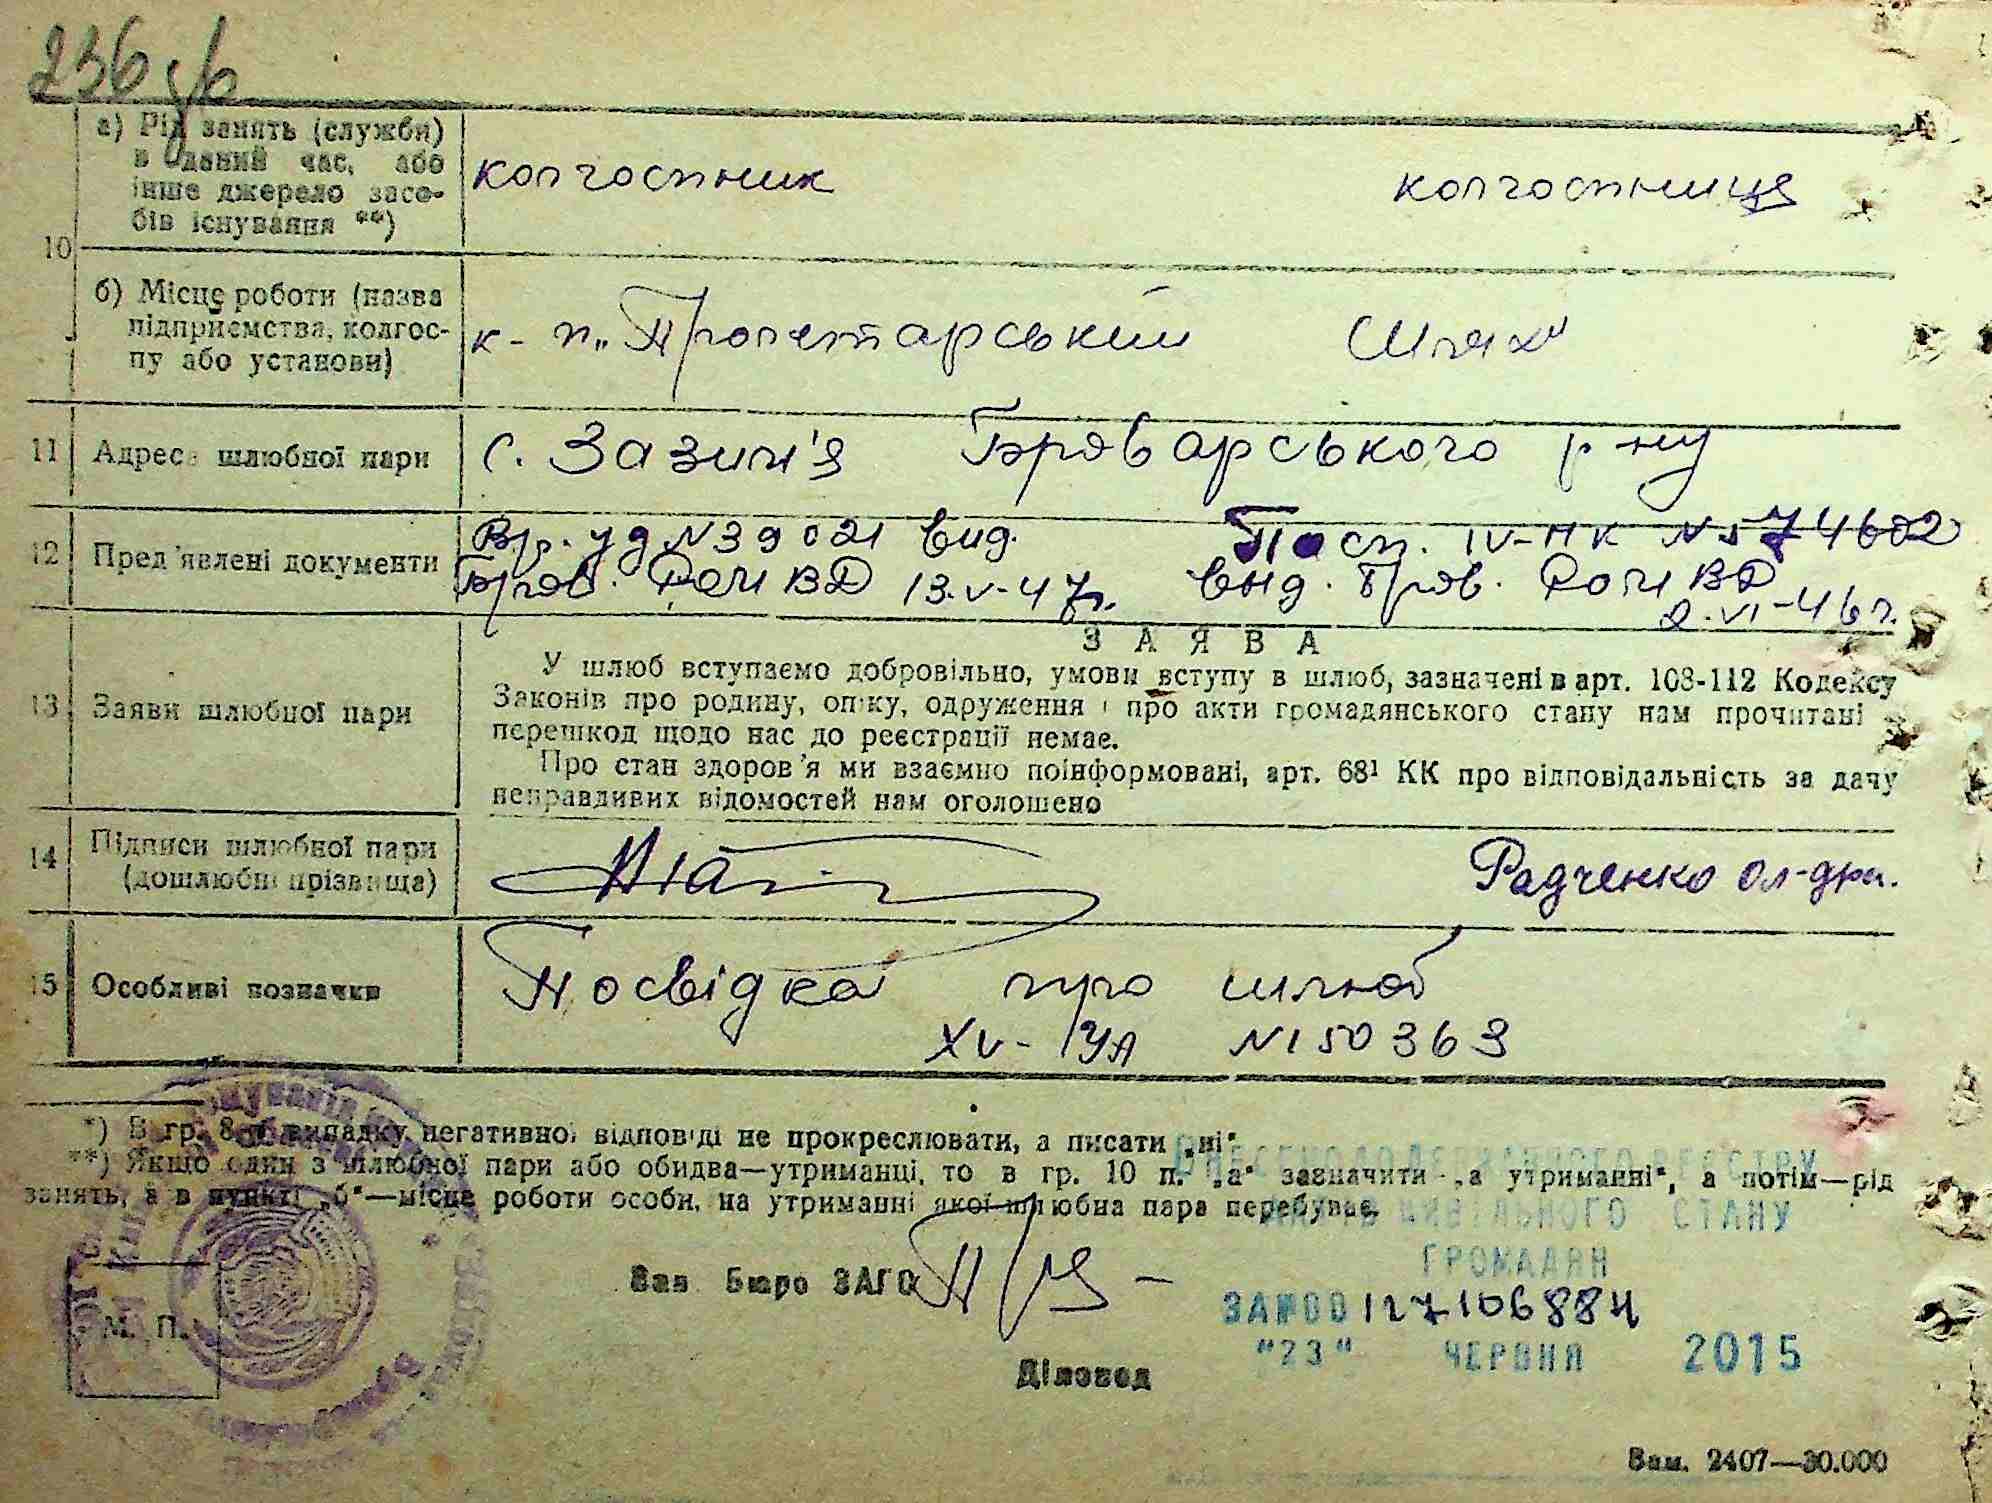 236 зв
10
а) Рід занять (служби)
в даний час, або
інше джерело засо-
бів існування **)
колгоспник колгоспниця
б) Місце роботи (назва
підприємства, колгос-
пу або установи)
к-п „Пролетарський Шлях"
11 Адреса шлюбної пари
с. Зазим'я Броварського р-ну
12 Пред'явлені документи
Вр. уд N39021 вид. Пасп. IV-НК N574602
Бров. РОМВД 13.V-47р. вид. Бров. РОМВД
2.VI-46р.
ЗАЯВА
13 Заяви шлюбної пари
У шлюб вступаємо добровільно, умови вступу в шлюб, зазначені в арт. 108-112 Кодексу
Законів про родину, опіку, одруження і про акти громадянського стану нам прочитані
перешкод щодо нас до реєстрації немає.
Про стан здоров'я ми взаємно поінформовані, арт. 68¹ КК про відповідальність за дачу
неправдивих відомостей нам оголошено
14 Підписи шлюбної пари
(дошлюбні прізвища)
Радченко Ол-дра.
15 Особливі позначки
Посвідка про шлюб
XV-УА N150363
*) В гр. 8 у випадку негативної відповіді не прокреслювати, а писати „ні"
**) Якщо один з шлюбної пари або обидва—утриманці, то в гр. 10 п. „а" зазначити „а утриманні", а потім—рід
занять, а в пункті „б"—місце роботи особи, на утриманні якої шлюбна пара перебуває.
ВНЕСЕНО ДО ДЕРЖАВНОГО РЕЄСТРУ
АКТІВ ЦИВІЛЬНОГО СТАНУ
ГРОМАДЯН
Зав. Бюро ЗАГС
ЗА №00127106884
М. П.
"23" ЧЕРВНЯ 2015
Діловод
Зам. 2407—30.000